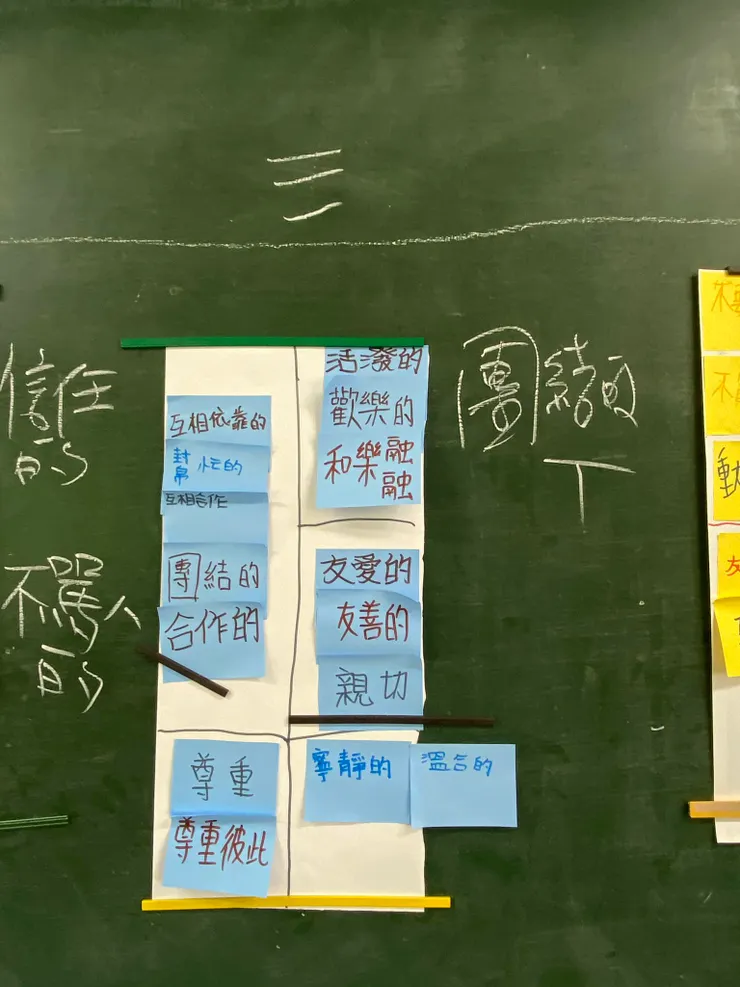 三
信任
的
不罵人
的
團結的
丁
互相依靠的
幫忙的
互相合作
團結的
合作的
尊重
尊重彼此
活潑的
歡樂的
和樂融融
友愛的
友善的
親切
寧靜的
溫合的
友